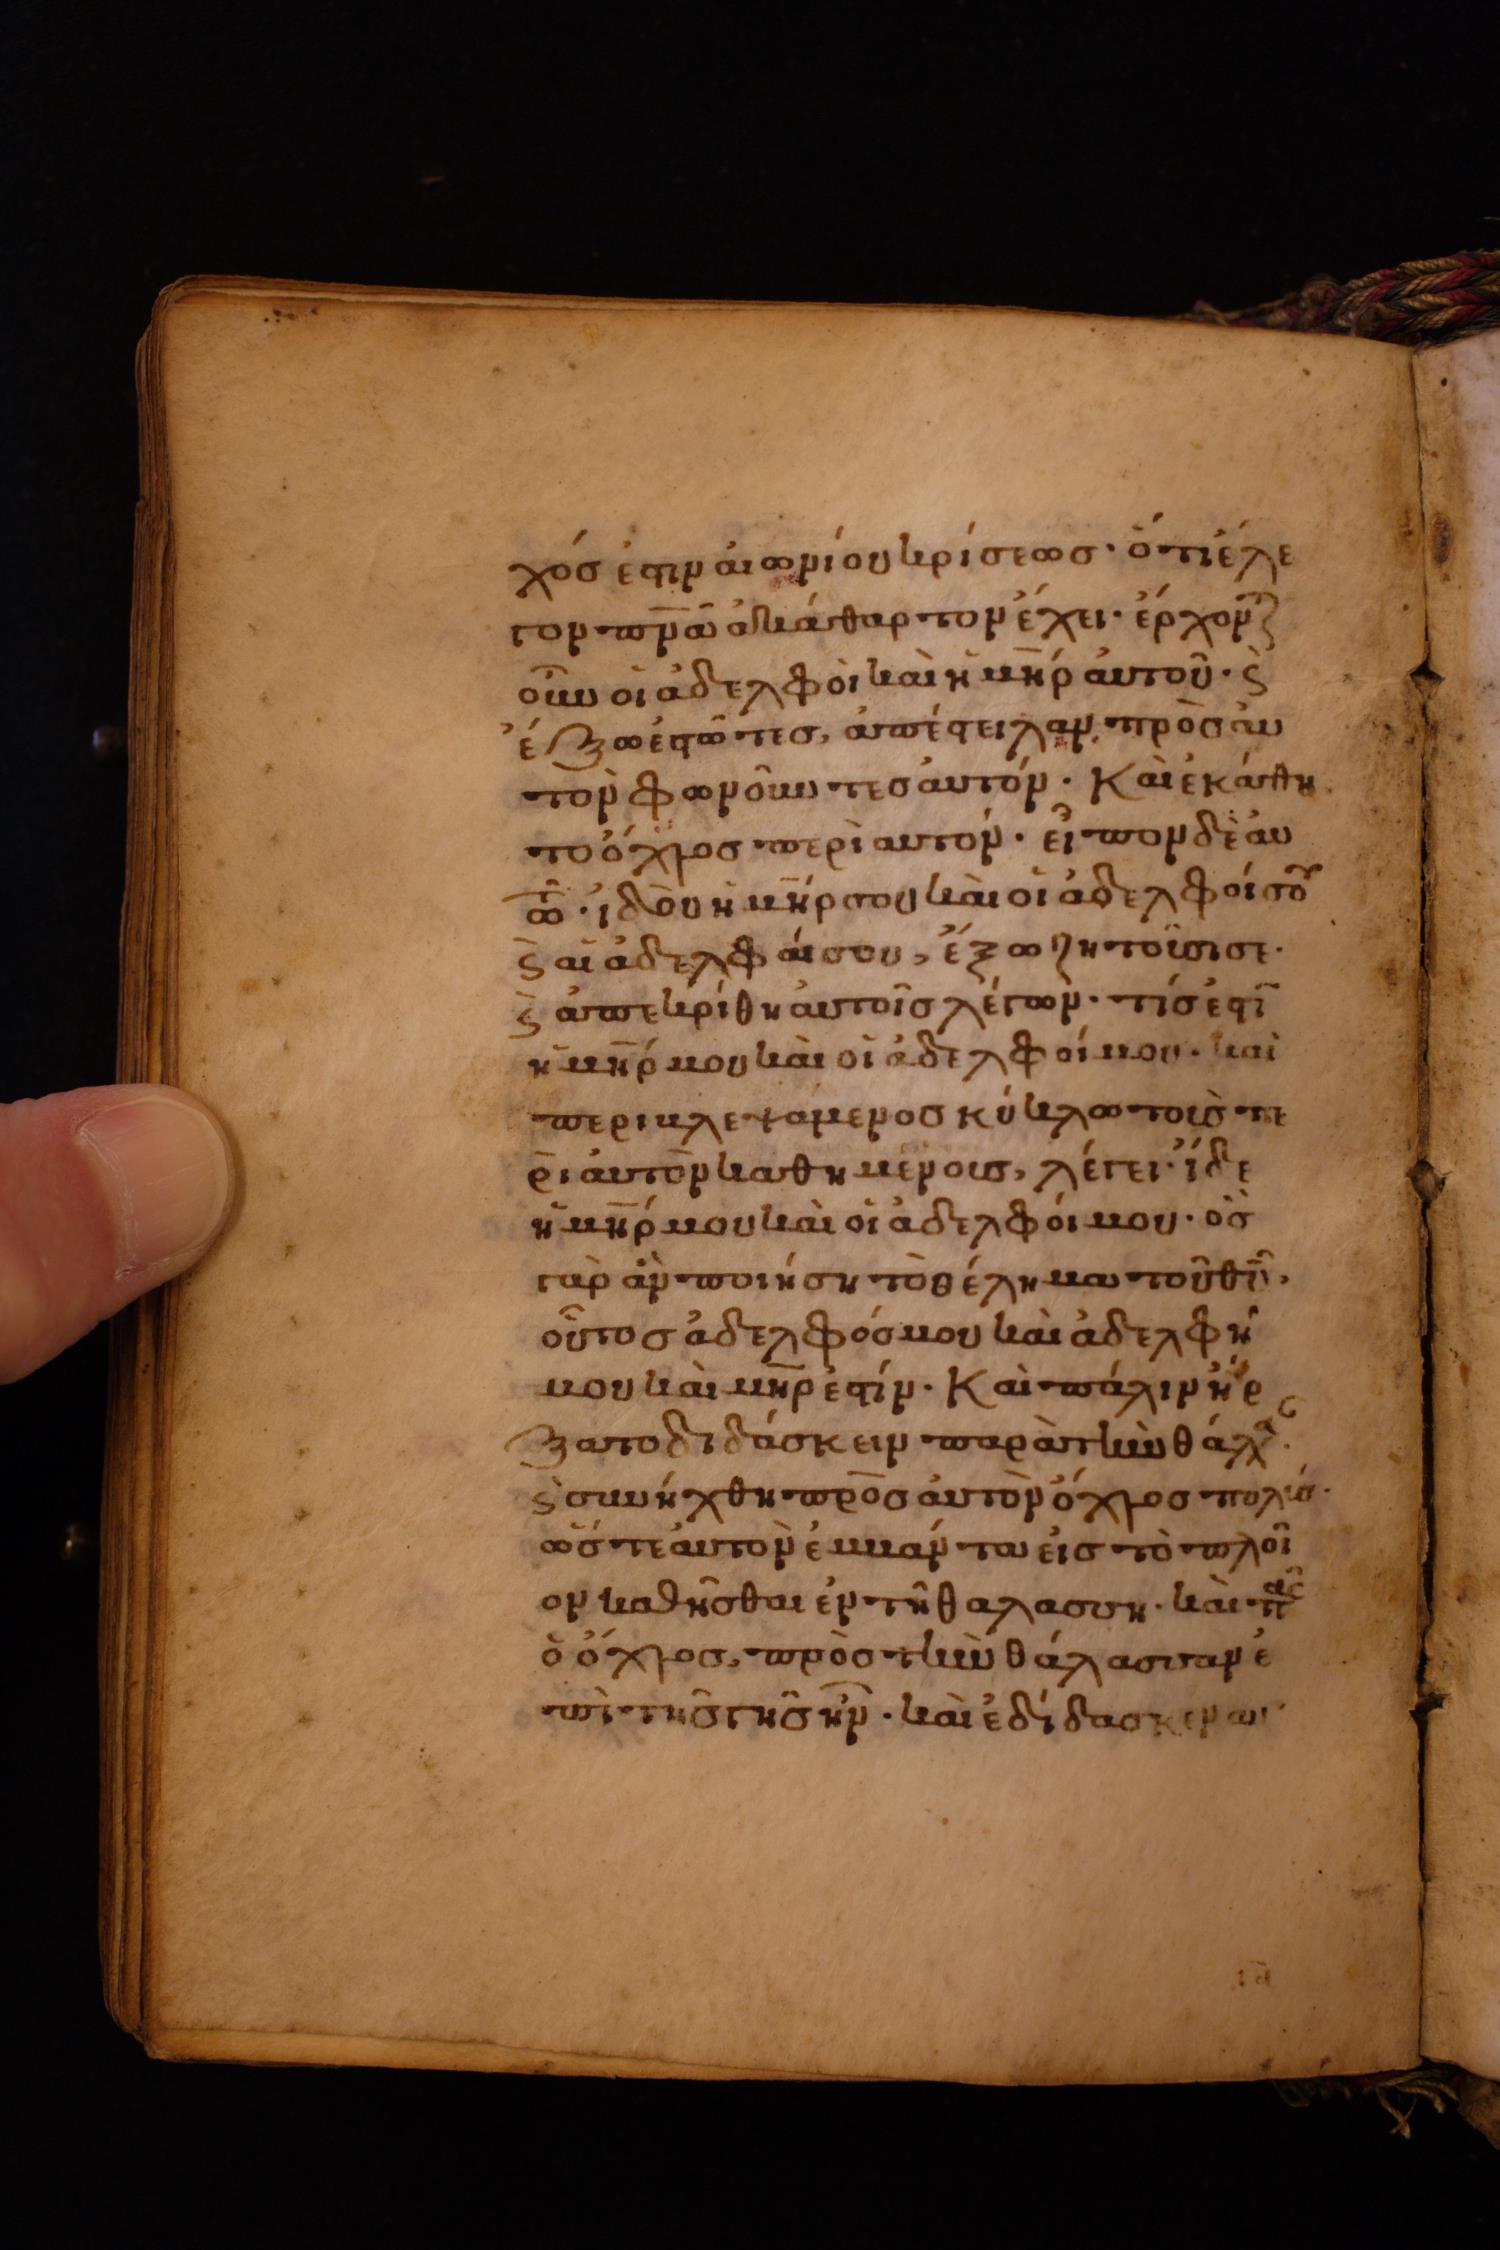 χός ἐστιν αἰωνίου κρίσεως· ὅτι ἔλε
γον πν̅ᾶ ἀκάθαρτον ἔχει· ἔρχοντ
οὖν οἱ ἀδελφοὶ καὶ ἡ μη̅ρ αὐτοῦ· ϛ̀
ἔξω ἑστῶτες, ἀπέστειλαν πρὸς αὐ
τὸν φωνοῦντες αὐτόν· Καὶ ἐκάθη
το ὄχλος περὶ αυτόν· εἶπον δὲ αὐ
τῶ· ἰδοὺ ἡ μή̅ρ σου καὶ οἱ ἀδελφοί σου
ϛ̀ αἱ ἀδελφαί σου, ἔξω ζητοῦσι σε·
ϛ̀ ἀπεκρίθη αὐτοῖς λέγων· τίς ἐστῒ
ἡ μή̅ρ μου καὶ οἱ ἀδελφοί μου· καὶ
περιβλεψάμενος κύκλω τοὺς πε
ρὶ αὐτὸν καθημένους, λέγει· ἴδε
ἡ μή̅ρ μου καὶ οἱ ἀδελφόι μου· ὃς
γὰρ ἂν ποιήση τὸ θέλημα τοῦ θῦ̅,
οὗτος ἀδελφός μου καὶ ἀδελφή
μου καὶ μη̅ρ ἐστίν· Καὶ πάλιν ἤρ
ξατο διδάσκειν παρὰ τὴν θάλ
ϛ̀ συνήχθη πρὸς αὐτὸν ὄχλος πολύς·
ὥστε αὐτὸν ἐμβάντα εἰς τὸ πλοῖ
ον καθῆσθαι ἐν τῆ θαλασση· καὶ πᾶς
ὁ ὄχλος, πρὸς τὴν θάλασσαν ἐ
πὶ τῆς γῆς ἦν· καὶ ἐδίδασκεν αυ